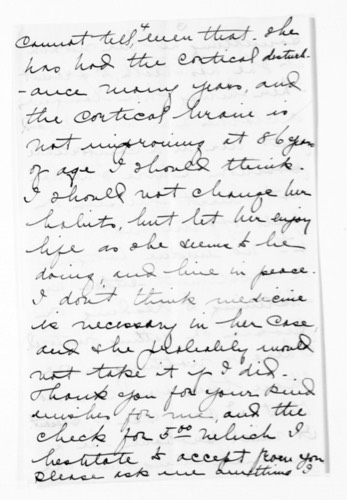 cannot tell, even that. She
has had the cortical disturb-
-ance many years, and
the cortical brain is
not improving at 86 years
of age I should think.
I should not change her
habits, but let her enjoy
life as she seems to be
doing, and live in peace.
I don't think medicine
is necessary in her case,
and she probably would
not take it if I did.
Thank you for your kind
wishes for me, and the
check for 5.00 which I
hesitate to accept from you
please ask me anything I